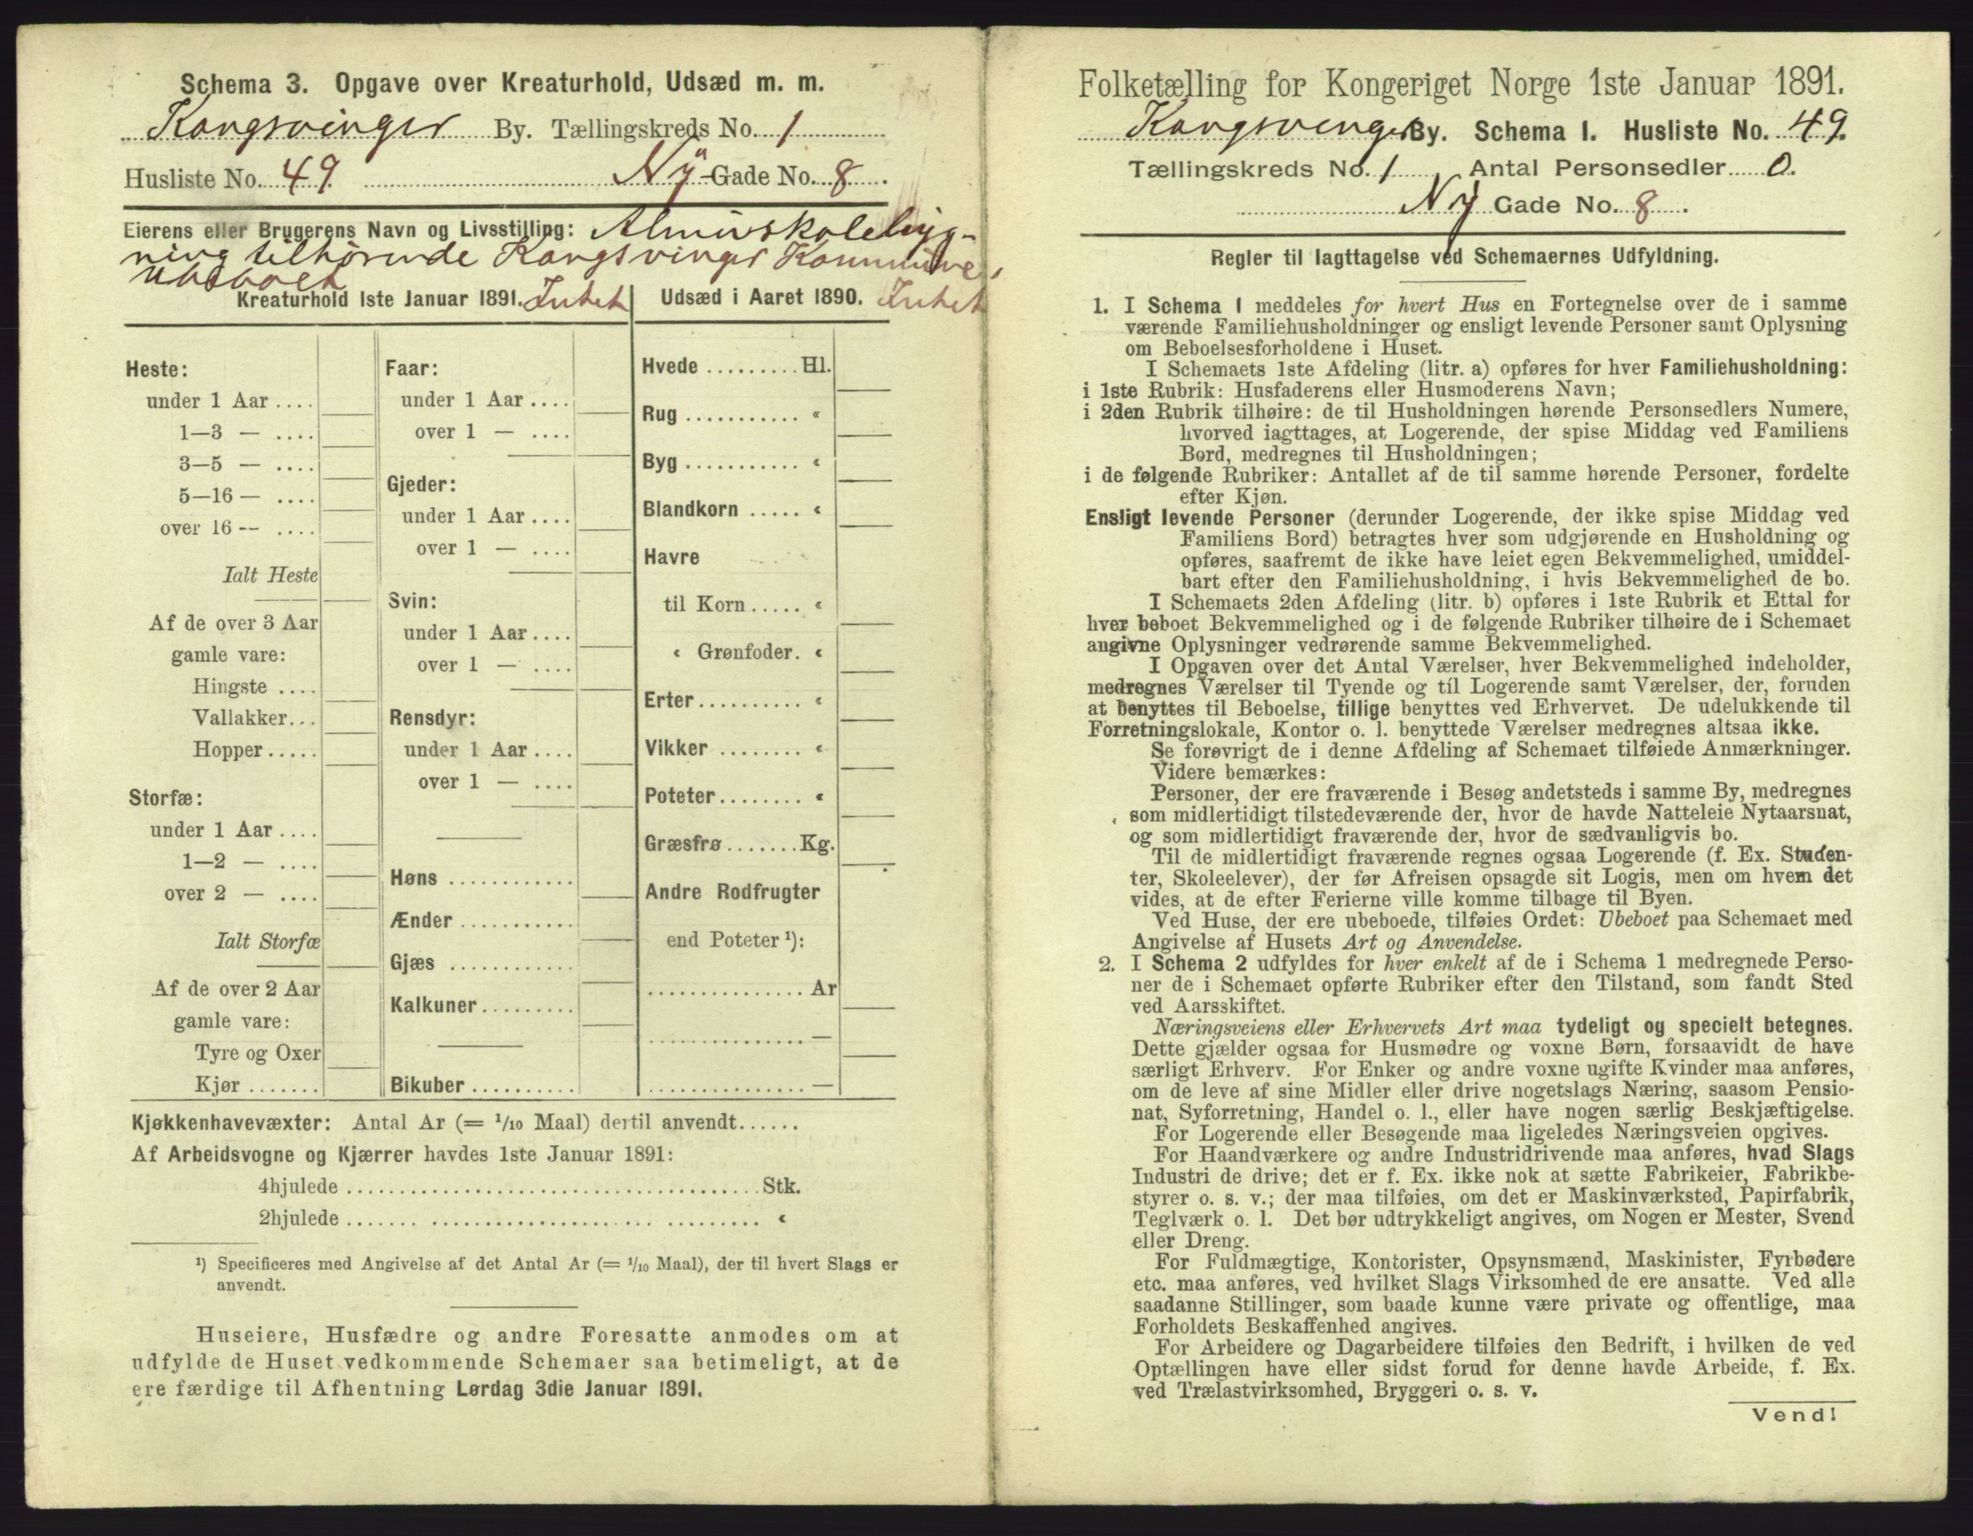 Schema 3. Opgave over Kreaturhold, Udsæd m. m.
Kongsvinger By. Tællingskreds No. 1
Husliste No. 49. Ny-Gade No. 8.
Eierens eller Brugerens Navn og Livsstilling: Almueskolebyg-
ning tilhørende Kongsvinger Kommune,
ubeboet
Kreaturhold 1ste Januar 1891. Intet
Heste:
under 1 Aar ....
1—3 — ....
3—5 — ....
5—16 — ....
over 16 -- ....
Ialt Heste
Af de over 3 Aar
gamle vare:
Hingste ....
Vallakker...
Hopper.....
Storfæ:
under 1 Aar ....
1—2 — ....
over 2 — ....
Ialt Storfæ
Af de over 2 Aar
gamle vare:
Tyre og Oxer
Kjør .......
Faar:
under 1 Aar ....
over 1 — ....
Gjeder:
under 1 Aar ....
over 1 — ....
Svin:
under 1 Aar....
over 1 — ....
Rensdyr:
under 1 Aar....
over 1 — ....
Høns ............
Ænder ...........
Gjæs ............
Kalkuner.........
Bikuber ..........
Udsæd i Aaret 1890. Intet
Hvede ......... Hl.
Rug ........... "
Byg ........... "
Blandkorn ..... "
Havre
til Korn ..... "
" Grønfoder. "
Erter .......... "
Vikker ........ "
Poteter ........ "
Græsfrø ....... Kg.
Andre Rodfrugter
end Poteter ¹):
............... Ar
............... —
............... —
Kjøkkenhavevæxter: Antal Ar (= 1/10 Maal) dertil anvendt......
Af Arbeidsvogne og Kjærrer havdes 1ste Januar 1891:
4hjulede ........................................ Stk.
2hjulede ........................................ "
¹) Specificeres med Angivelse af det Antal Ar (= 1/10 Maal), der til hvert Slags er
anvendt.
Huseiere, Husfædre og andre Foresatte anmodes om at
udfylde de Huset vedkommende Schemaer saa betimeligt, at de
ere færdige til Afhentning Lørdag 3die Januar 1891.
Folketælling for Kongeriget Norge 1ste Januar 1891.
Kongsvinger By. Schema I. Husliste No. 49.
Tællingskreds No. 1 Antal Personsedler 0.
Ny Gade No. 8.
Regler til Iagttagelse ved Schemaernes Udfyldning.
1. I Schema 1 meddeles for hvert Hus en Fortegnelse over de i samme
værende Familiehusholdninger og ensligt levende Personer samt Oplysning
om Beboelsesforholdene i Huset.
I Schemaets 1ste Afdeling (litr. a) opføres for hver Familiehusholdning:
i 1ste Rubrik: Husfaderens eller Husmoderens Navn;
i 2den Rubrik tilhøire: de til Husholdningen hørende Personsedlers Numere,
hvorved iagttages, at Logerende, der spise Middag ved Familiens
Bord, medregnes til Husholdningen;
i de følgende Rubriker: Antallet af de til samme hørende Personer, fordelte
efter Kjøn.
Ensligt levende Personer (derunder Logerende, der ikke spise Middag ved
Familiens Bord) betragtes hver som udgjørende en Husholdning og
opføres, saafremt de ikke have leiet egen Bekvemmelighed, umiddel-
bart efter den Familiehusholdning, i hvis Bekvemmelighed de bo.
I Schemaets 2den Afdeling (litr. b) opføres i 1ste Rubrik et Ettal for
hver beboet Bekvemmelighed og i de følgende Rubriker tilhøire de i Schemaet
angivne Oplysninger vedrørende samme Bekvemmelighed.
I Opgaven over det Antal Værelser, hver Bekvemmelighed indeholder,
medregnes Værelser til Tyende og til Logerende samt Værelser, der, foruden
at benyttes til Beboelse, tillige benyttes ved Erhvervet. De udelukkende til
Forretningslokale, Kontor o. l. benyttede Værelser medregnes altsaa ikke.
Se forøvrigt de i denne Afdeling af Schemaet tilføiede Anmærkninger.
Videre bemærkes:
Personer, der ere fraværende i Besøg andetsteds i samme By, medregnes
som midlertidigt tilstedeværende der, hvor de havde Natteleie Nytaarsnat,
og som midlertidigt fraværende der, hvor de sædvanligvis bo.
Til de midlertidigt fraværende regnes ogsaa Logerende (f. Ex. Studen-
ter, Skoleelever), der før Afreisen opsagde sit Logis, men om hvem det
vides, at de efter Ferierne ville komme tilbage til Byen.
Ved Huse, der ere ubeboede, tilføies Ordet: Ubeboet paa Schemaet med
Angivelse af Husets Art og Anvendelse.
2. I Schema 2 udfyldes for hver enkelt af de i Schema 1 medregnede Perso-
ner de i Schemaet opførte Rubriker efter den Tilstand, som fandt Sted
ved Aarsskiftet.
Næringsveiens eller Erhvervets Art maa tydeligt og specielt betegnes.
Dette gjælder ogsaa for Husmødre og voxne Børn, forsaavidt de have
særligt Erhverv. For Enker og andre voxne ugifte Kvinder maa anføres,
om de leve af sine Midler eller drive nogetslags Næring, saasom Pensio-
nat, Syforretning, Handel o. l., eller have nogen særlig Beskjæftigelse.
For Logerende eller Besøgende maa ligeledes Næringsveien opgives.
For Haandværkere og andre Industridrivende maa anføres, hvad Slags
Industri de drive; det er f. Ex. ikke nok at sætte Fabrikeier, Fabrikbe-
styrer o. s. v.; der maa tilføies, om det er Maskinværksted, Papirfabrik,
Teglværk o. l. Det bør udtrykkeligt angives, om Nogen er Mester, Svend
eller Dreng.
For Fuldmægtige, Kontorister, Opsynsmænd, Maskinister, Fyrbødere
etc. maa anføres, ved hvilket Slags Virksomhed de ere ansatte. Ved alle
saadanne Stillinger, som baade kunne være private og offentlige, maa
Forholdets Beskaffenhed angives.
For Arbeidere og Dagarbeidere tilføies den Bedrift, i hvilken de ved
Optællingen have eller sidst forud for denne havde Arbeide, f. Ex.
ved Trælastvirksomhed, Bryggeri o. s. v.
Vend!